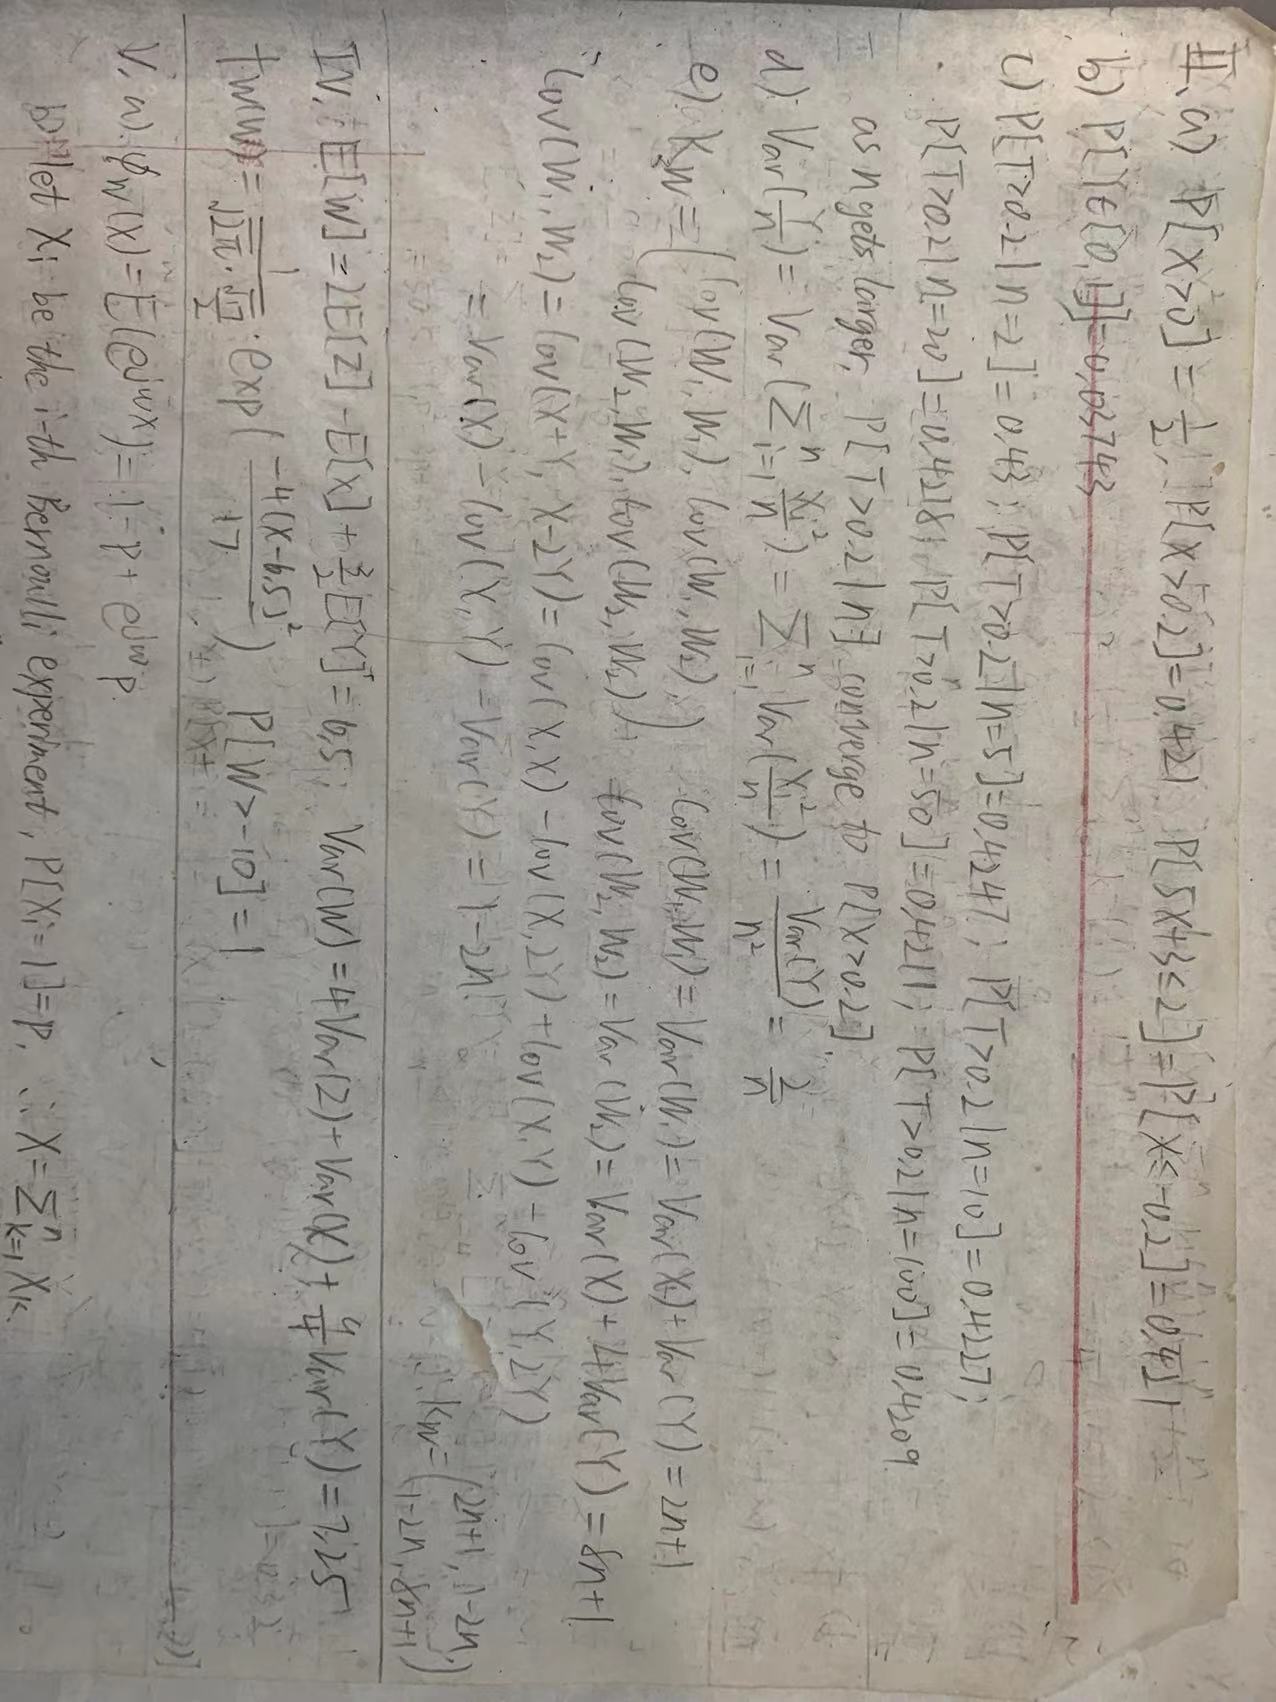 II、a) P[X>0] = 1/2, P[X>0.2]=0.421. P[5X+3≤2]=P[X≤-0.2]=0.421
b) P[Y∈[0,1]]=0.03743
c) P[T>0.2|n=2]=0.43; P[T>0.2|n=5]=0.4247; P[T>0.2|n=10]=0.4227;
P[T>0.2|n=20]=0.4218; P[T>0.2|n=50]=0.4211; P[T>0.2|n=100]=0.4209.
as n gets larger, P[T>0.2|n] converge to P[X>0.2].
d) Var(Y/n) = Var(∑_{i=1}^n X_i²/n) = ∑_{i=1}^n Var(X_i²/n) = Var(Y)/n² = 2/n
e) K_W = (Cov(W₁,W₁), Cov(W₁,W₂), Cov(W₁,W₁) = Var(W₁) = Var(X)+Var(Y) = 2n+1
Cov(W₂,W₁), Cov(W₂,W₂)) Cov(W₂,W₂) = Var(W₂) = Var(X)+4Var(Y) = 8n+1
Cov(W₁,W₂) = Cov(X+Y, X-2Y) = Cov(X,X) - Cov(X,2Y) + Cov(X,Y) - Cov(Y,2Y)
= Var(X) - Cov(X,Y) - Var(Y) = 1-2n.
∴ K_W = (2n+1, 1-2n, 1-2n, 8n+1)
IV. E[W] = 2E[Z] - E[X] + 3/2 E[Y] = 6.5; Var(W) = 4Var(Z) + Var(X) + 9/4 Var(Y) = 7.25
f_W(w) = 1/(√2π · √17/2) · exp(-4(X-6.5)²/17) P[W>-10] = 1
V. a). φ_W(X) = E(e^{jwX}) = 1-p + e^{jw}p.
b) let X_i be the i-th Bernoulli experiment, P[X_i=1]=p. ∴ X=∑_{k=1}^n X_k.